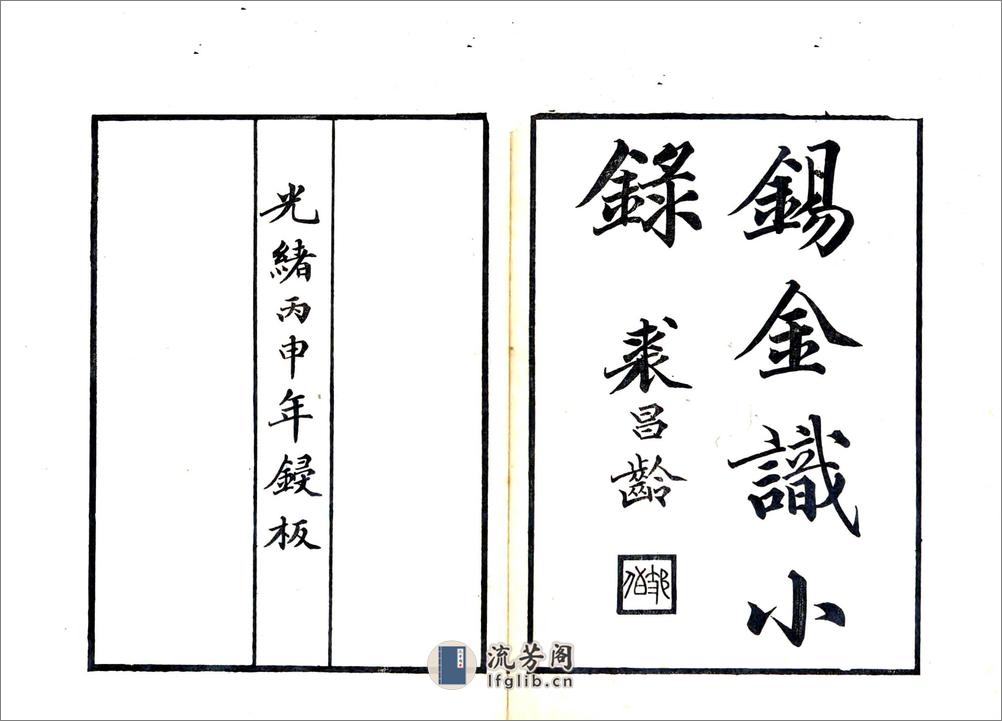 錫金識小
錄
裘昌齡
光緒丙申年鋟板
流芳阁
lfglib.cn